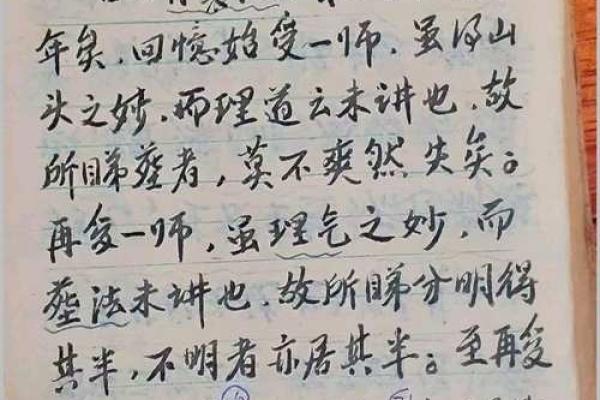 年矣．回憶始受一师．虽得山
头之妙．而理道云未讲也．故
所睇蓙者，莫不爽然失矣。
再受一师，虽理气之妙，而
蓙法未讲也．故所睇分明得
其半，不明者亦居其半。至再受